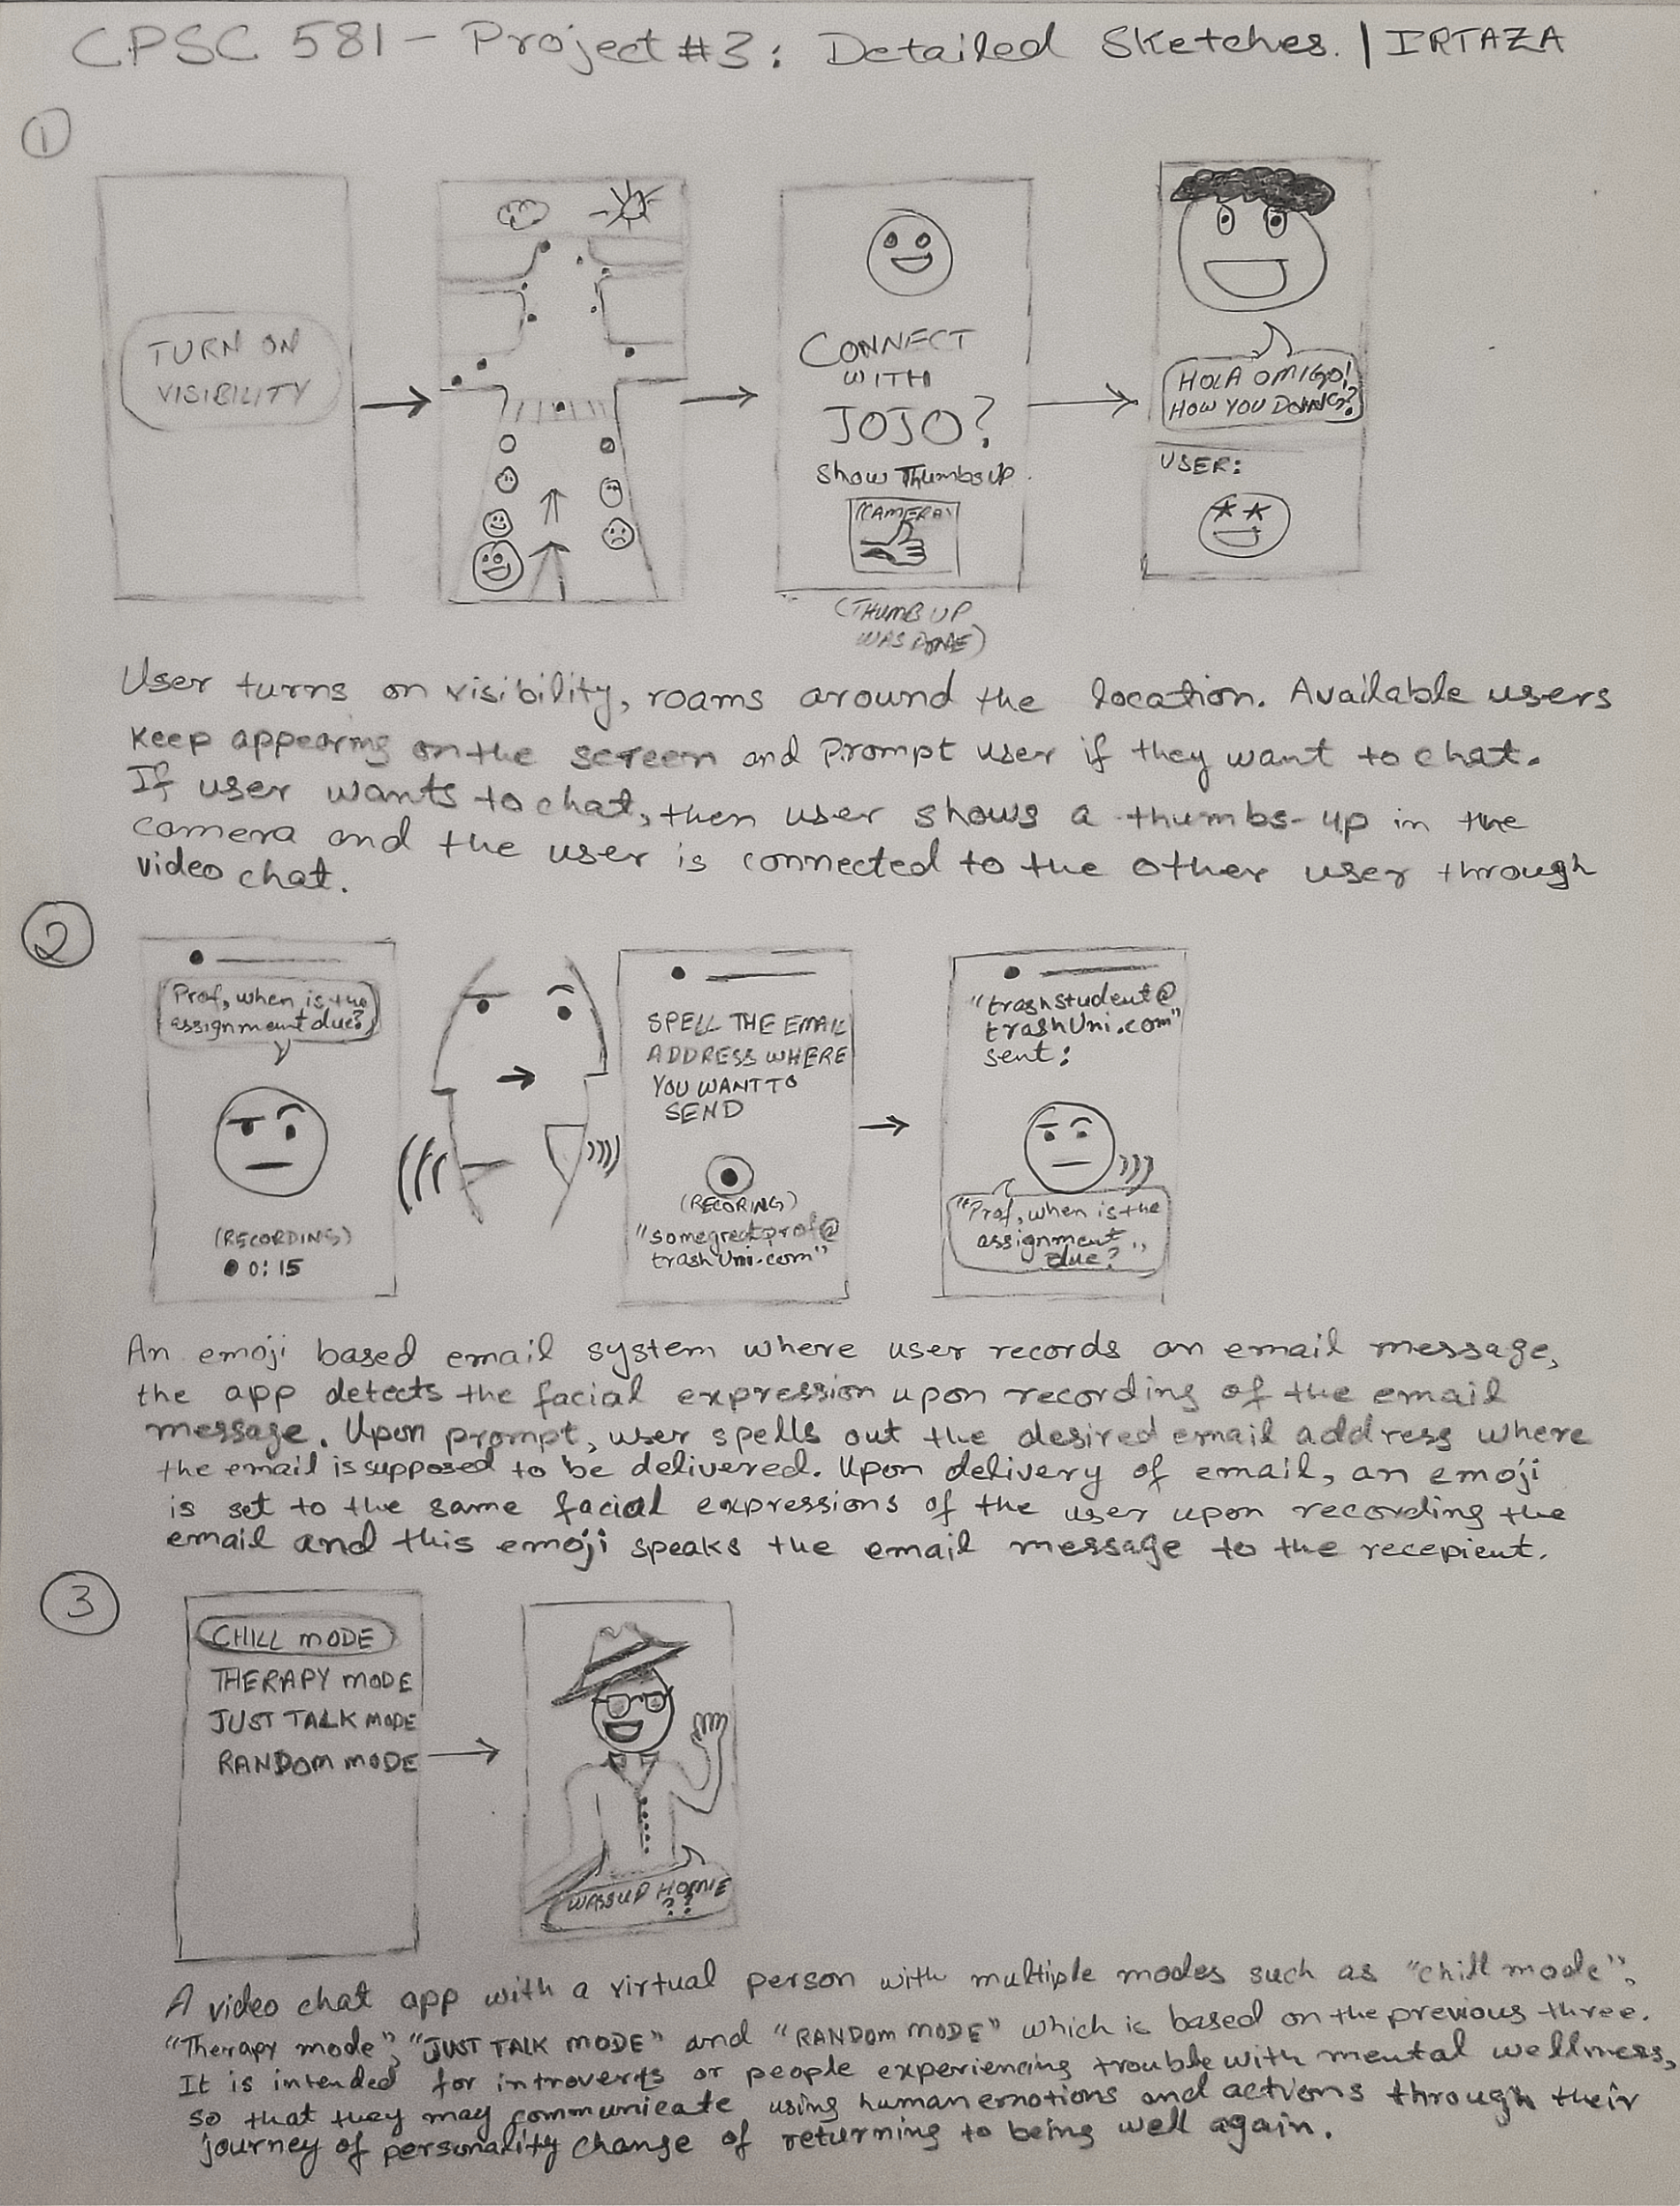 CPSC 581 - Project #3: Detailed Sketches. | IRTAZA
1
TURN ON
VISIBILITY
CONNECT
WITH
JOJO?
Show Thumbs UP.
CAMERA
(THUMB UP
WAS DONE)
HOLA OMIGO!
HOW YOU DOING?
USER:
User turns on visibility, roams around the location. Available users
keep appearing on the screen and Prompt user if they want to chat.
If user wants to chat, then user shows a thumbs-up in the
camera and the user is connected to the other user through
video chat.
2
Prof, when is the
assignment due?
(RECORDING)
0:15
SPELL THE EMAIL
ADDRESS WHERE
YOU WANT TO
SEND
(RECORING)
"somegreatprof@
trashUni.com"
"trashstudent@
trashUni.com"
sent:
"Prof, when is the
assignment
due?"
An emoji based email system where user records an email message,
the app detects the facial expression upon recording of the email
message. Upon prompt, user spells out the desired email address where
the email is supposed to be delivered. Upon delivery of email, an emoji
is set to the same facial expressions of the user upon recording the
email and this emoji speaks the email message to the recepient.
3
CHILL MODE
THERAPY MODE
JUST TALK MODE
RANDOM MODE
WASSUP HOMIE
??
A video chat app with a virtual person with multiple modes such as "chill mode",
"Therapy mode", "JUST TALK MODE" and "RANDOM MODE" which is based on the previous three.
It is intended for introverts or people experiencing trouble with mental wellness,
so that they may communicate using human emotions and actions through their
journey of personality change of returning to being well again.